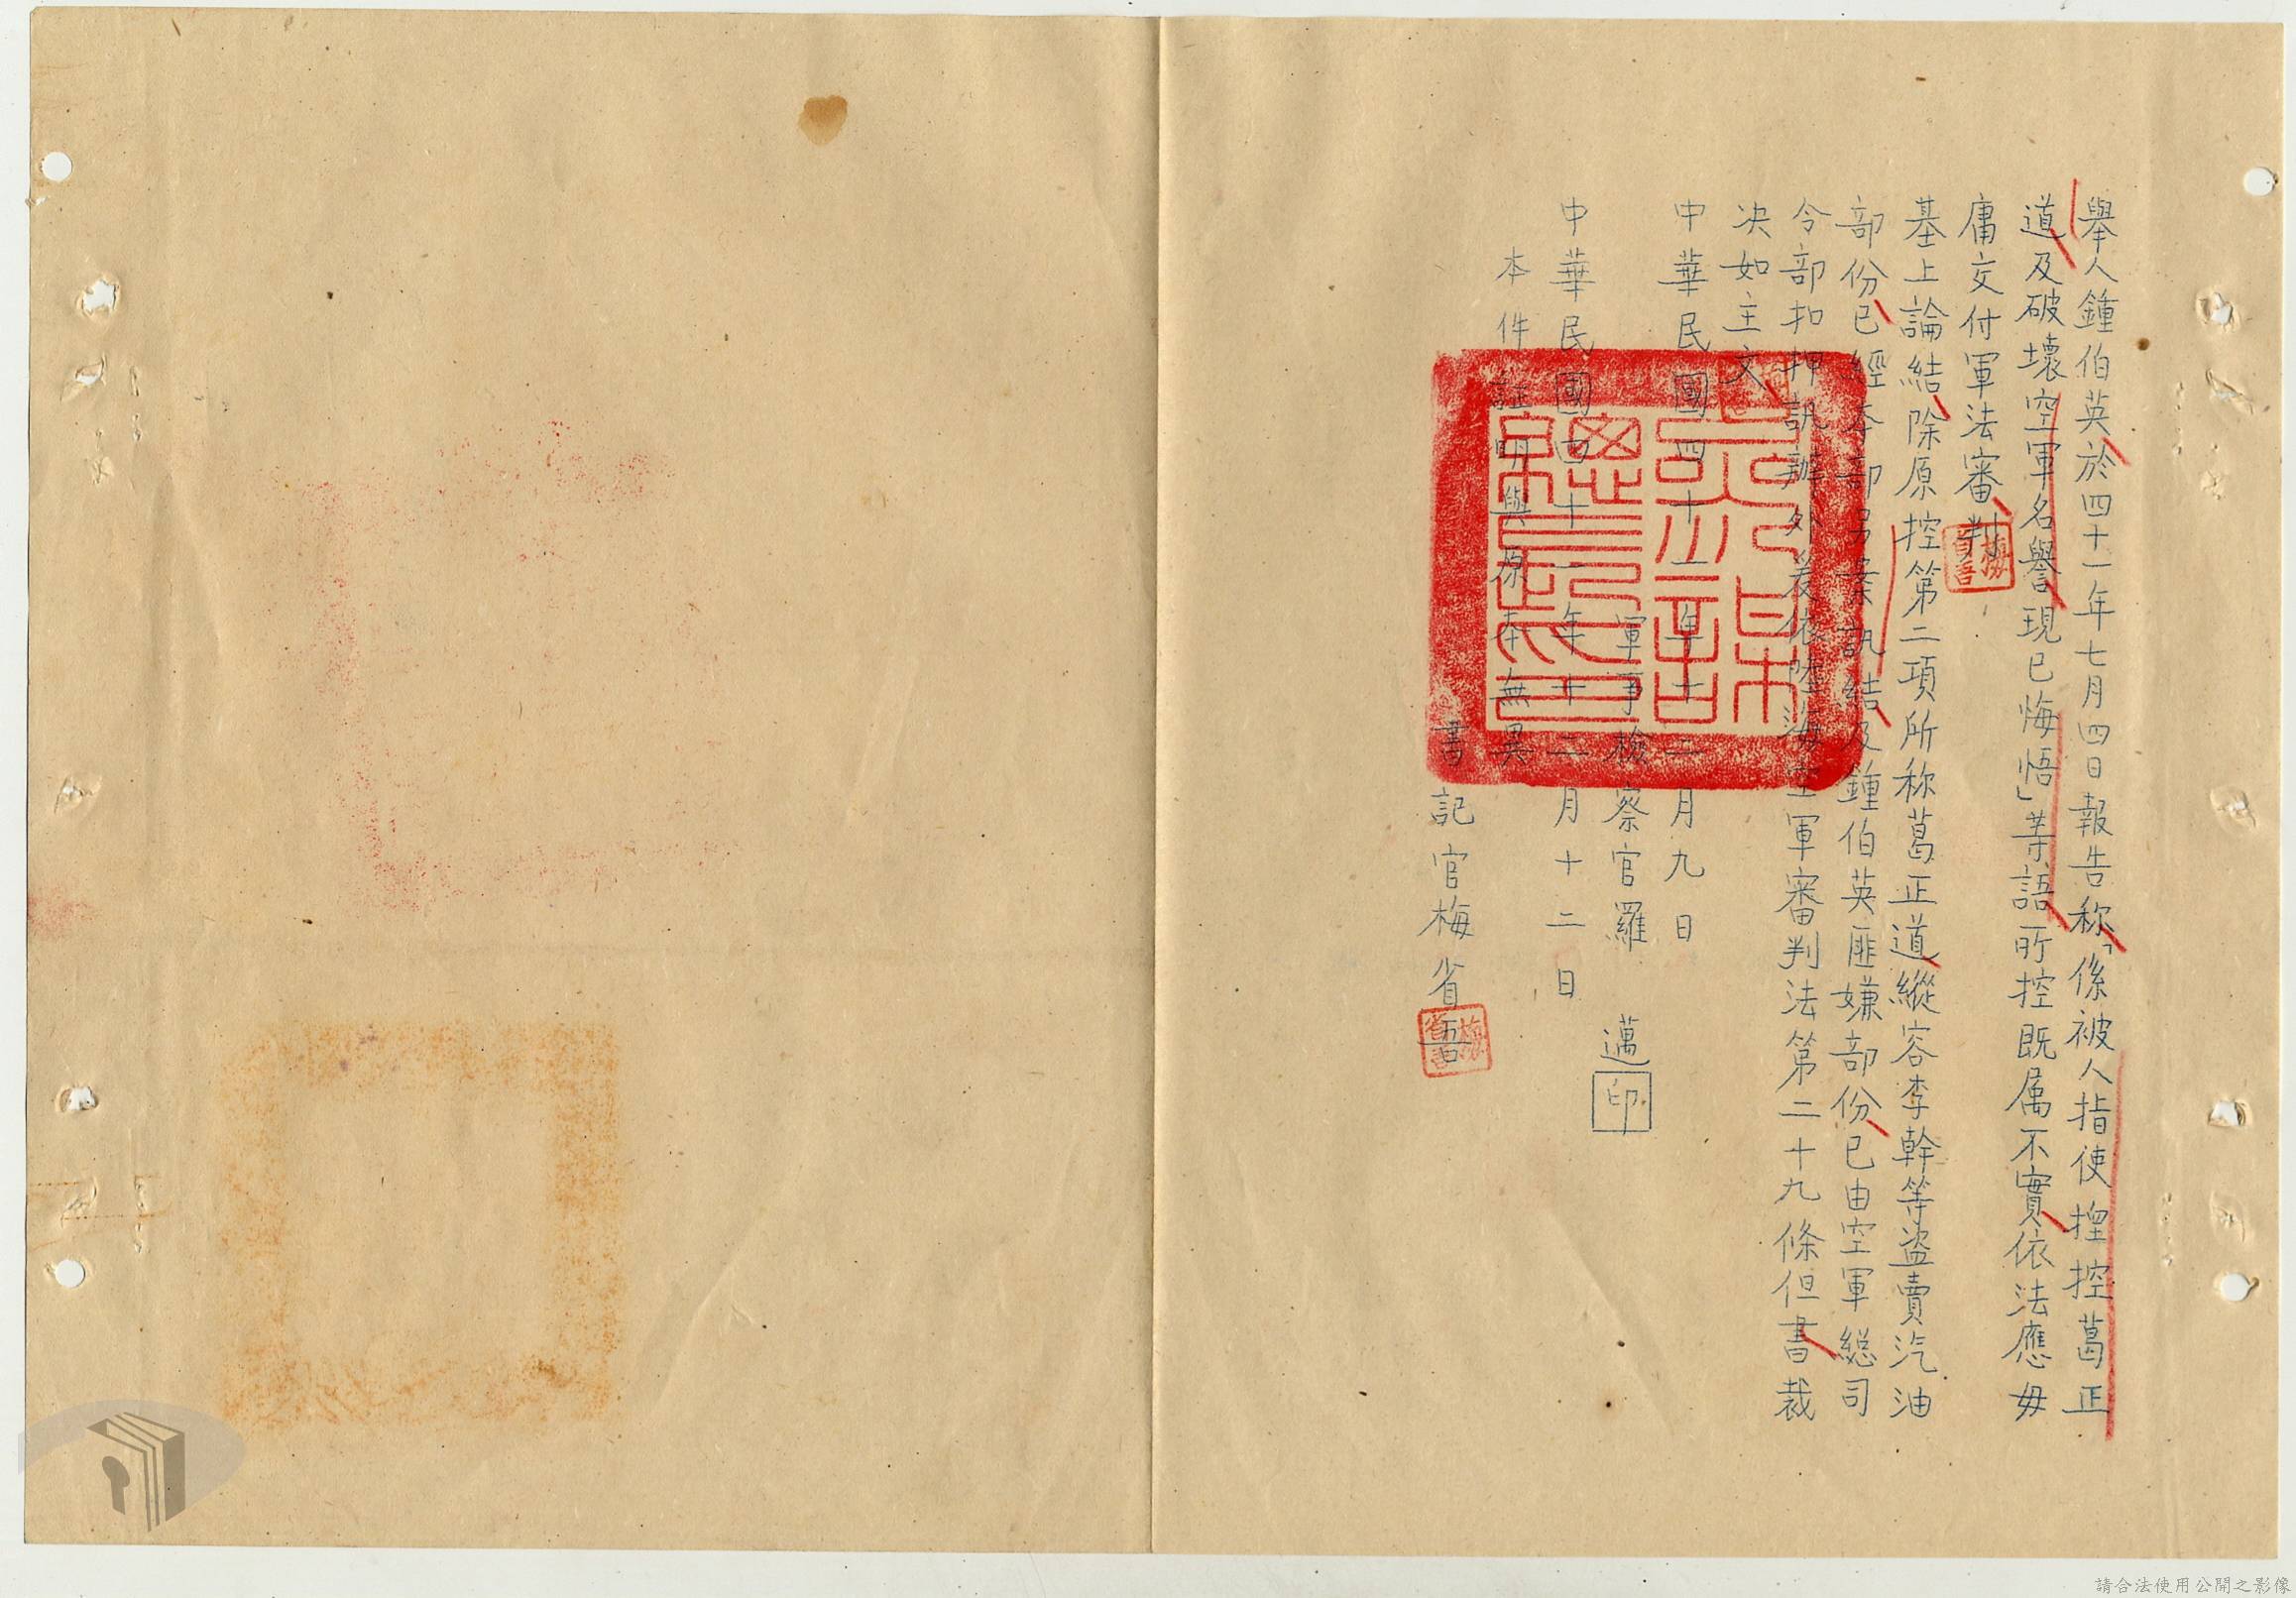 舉人鍾伯英於四十一年七月四日報告称「係被人指使揑控葛正
道及破壞空軍名譽現已悔悟」等語所控既属不實依法應毋
庸交付軍法審判
基上論結除原控第二項所称葛正道縱容李幹等盜賣汽油
部份已經本部另案訊結及鍾伯英匪嫌部份已由空軍總司
令部扣押訊辦外爰依陸海空軍審判法第二十九條但書裁
决如主文
中華民國四十一年十二月九日
軍事檢察官羅 邁 印
中華民國四十一年十二月十二日
本件証明與原本無異
書記官梅省吾
請合法使用公開之影像